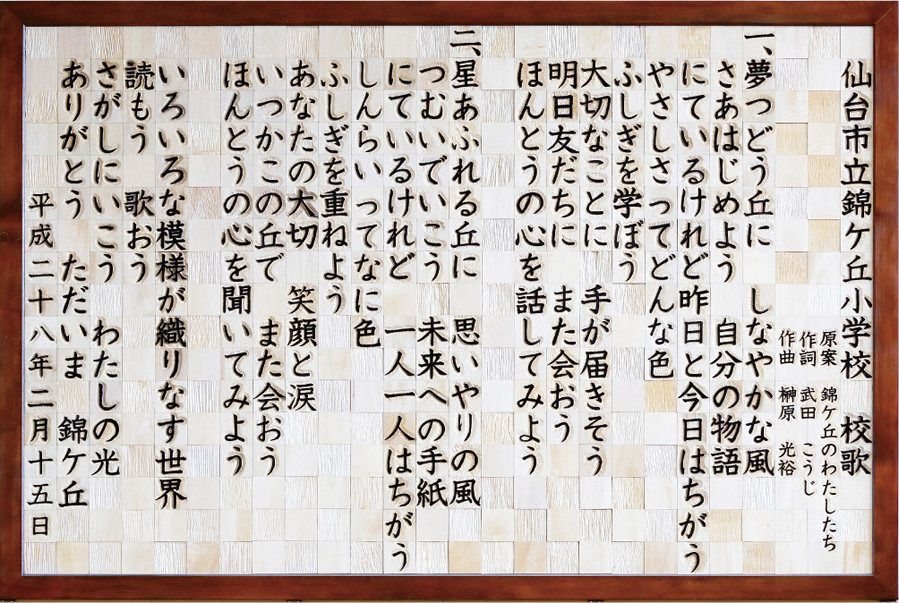 仙台市立錦ケ丘小学校　校歌
原案　錦ケ丘のわたしたち
作詞　武田　こうじ
作曲　榊原　光裕
一、夢つどう丘に　しなやかな風
さあはじめよう　自分の物語
にているけれど昨日と今日はちがう
やさしさってどんな色
ふしぎを学ぼう
大切なことに　手が届きそう
明日友だちに　また会おう
ほんとうの心を話してみよう
二、星あふれる丘に　思いやりの風
つむいでいこう　未来への手紙
にているけれど　一人一人はちがう
しんらいってなに色
ふしぎを重ねよう
あなたの大切　笑顔と涙
いつかこの丘で　また会おう
ほんとうの心を聞いてみよう
いろいろな模様が織りなす世界
読もう　歌おう
さがしにいこう　わたしの光
ありがとう　ただいま　錦ケ丘
平成二十八年二月十五日